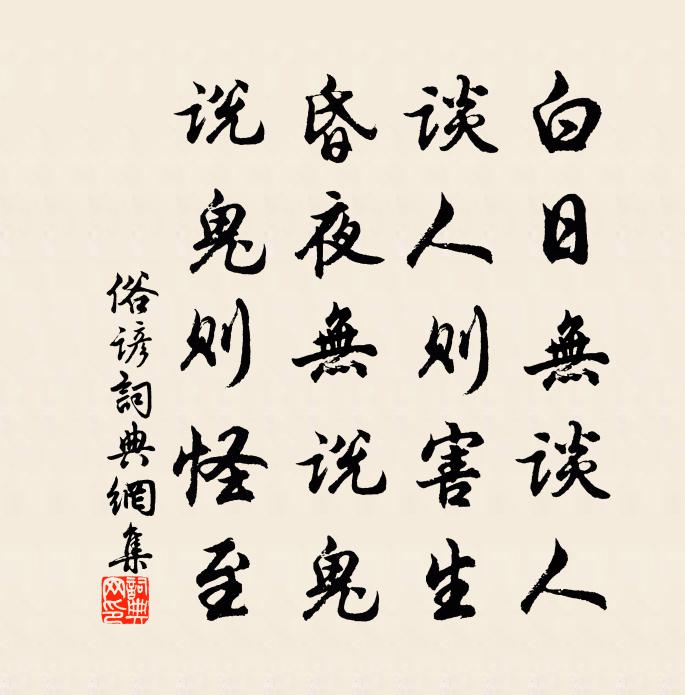 白日無谈人
谈人则害生
昏夜無说鬼
说鬼则怪至
俗諺詞典網集